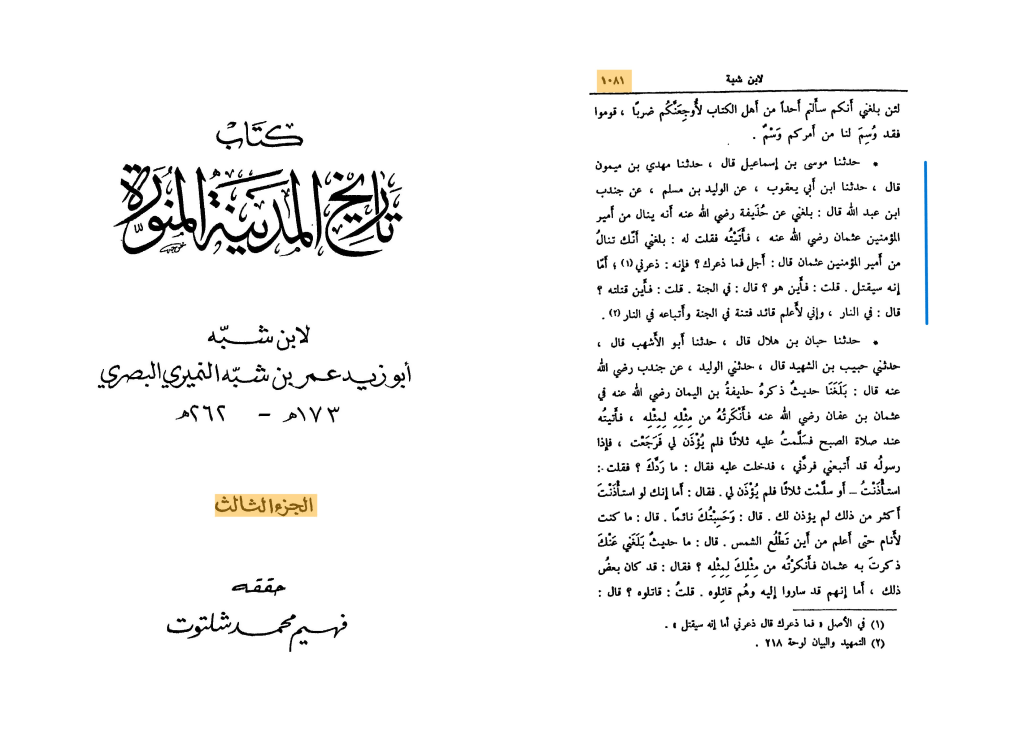 كتاب
تاريخ المدينة المنورة
لابن شبّه
أبو زيد عمر بن شبّه النميري البصري
١٧٣هـ - ٢٦٢هـ
الجزء الثالث
حققه
فهيم محمد شلتوت
لابن شبة
١٠٨١
لئن بلغني أنكم سألتم أحداً من أهل الكتاب لأُوجِعَنَّكُم ضربًا ، قوموا
فقد وُسِمَ لنا من أمركم وَسْمٌ .
• حدثنا موسى بن إسماعيل قال ، حدثنا مهدي بن ميمون
قال ، حدثنا ابن أبي يعقوب ، عن الوليد بن مسلم ، عن جندب
ابن عبد الله قال : بلغني عن حُذَيفة رضي الله عنه أنه ينال من أمير
المؤمنين عثمان رضي الله عنه ، فأتَيْتُه فقلت له : بلغني أنّك تنالُ
من أمير المؤمنين عثمان قال : أجل فما ذعرك ؟ فإنه : ذعرني (١) ؛ أمّا
إنه سيقتل . قلت : فأين هو ؟ قال : في الجنة . قلت : فأين قتلته ؟
قال : في النار ، وإني لأعلم قائد فتنة في الجنة وأتباعه في النار (٢) .
• حدثنا حبان بن هلال قال ، حدثنا أبو الأشهب قال ،
حدثني حبيب بن الشهيد قال ، حدثني الوليد ، عن جندب رضي الله
عنه قال : بَلَغَنَا حديثٌ ذكرهُ حذيفةُ بن اليمان رضي الله عنه في
عثمان بن عفان رضي الله عنه فأنْكَرتُه من مِثْلِهِ لِمِثْلِه ، فأتيتُه
عند صلاة الصبح فسَلَّمتُ عليه ثلاثًا فلم يُؤْذَن لي فَرَجَعْت ، فإذا
رسولُه قد أتبعني فردَّني ، فدخلت عليه فقال : ما رَدَّكَ ؟ فقلت :
استأْذَنْتُ – أو سلَّمْت ثلاثًا فلم يُؤْذَن لي . فقال : أما إنك لو استأْذَنْتَ
أكثر من ذلك لم يؤذن لك . قال : وَحَسِبْتُكَ نائمًا . قال : ما كنت
لأنام حتى أعلم من أين تَطْلُع الشمس . قال : ما حديثٌ بَلَغَني عَنْكَ
ذكرتَ به عثمان فأنكرْتُه من مِثْلِكَ لِمِثْلِه ؟ فقال : قد كان بعضُ
ذلك ، أما إنهم قد ساروا إليه وهُم قاتِلوه . قلتُ : قاتلوه ؟ قال :
(١) في الأصل « فما ذعرك قال ذعرني أما إنه سيقتل » .
(٢) التمهيد والبيان لوحة ٢١٨ .